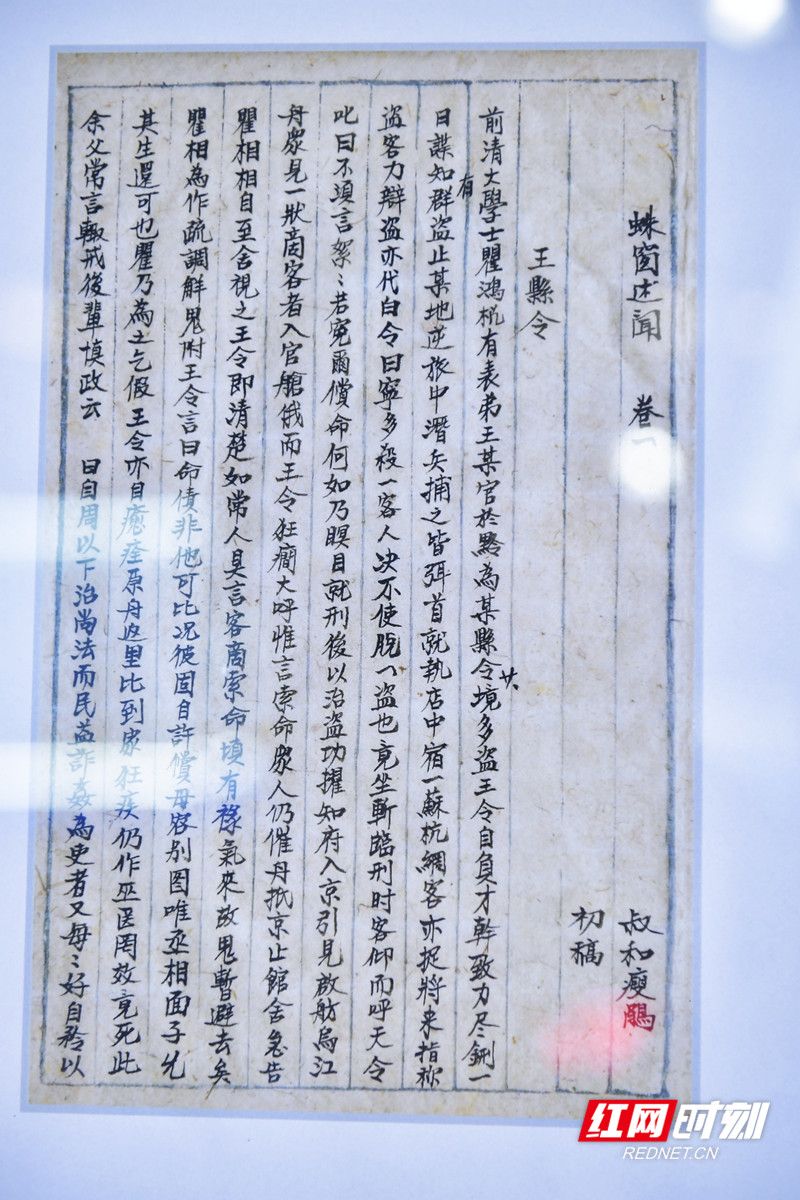 蛛窗述聞 卷一 叔和瘦鵑
初稿
王縣令
前清大學士瞿鴻禨有表弟王某官於黔為某縣令境多盜王令自負才幹致力尽鉶一
日諜知有群盜止某地逆旅中潛兵捕之皆弭首就執店中宿一蘇杭綢客亦捉將来指祢
盜客力辯盜亦代白令曰寧多殺一客人决不使脫一盜也竟坐斬臨刑时客仰而呼天令
叱曰不須言絮〻若寃爾償命何如乃瞑目就刑後以治盜功擢知府入京引見啟舫烏江
舟眾見一狀商客者入官艙俄而王令狂癎大呼惟言索命眾人仍催舟抵京止館舍急告
瞿相相自至舍視之王令即清楚如常人具言客商索命頃有祿氣來故鬼暫避去矣
瞿相為作疏調解鬼附王令言曰命債非他可比况彼固自許償毋容别图唯丞相面子允
其生還可也瞿乃為之乞假王令亦自瘛痊原舟返里比到家狂疾仍作巫医罔效竟死此
余父常言輙戒後輩慎政云 曰自周以下治尚法而民益詐姦為吏者又每〻好自矜以
红网时刻
REDNET.CN